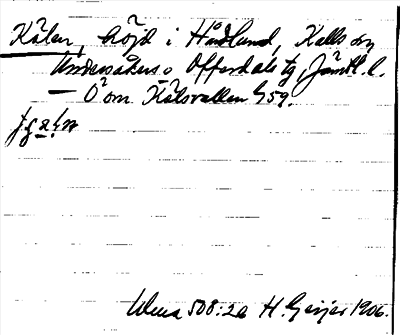 Kålen, höjd i Hådlund, Kalls sn,
Undersåkers o Offerdals tg, Jämtl. l.
— Ö om Kålsvallen h 59.
Ulma 508:2a H. Geijer 1906.